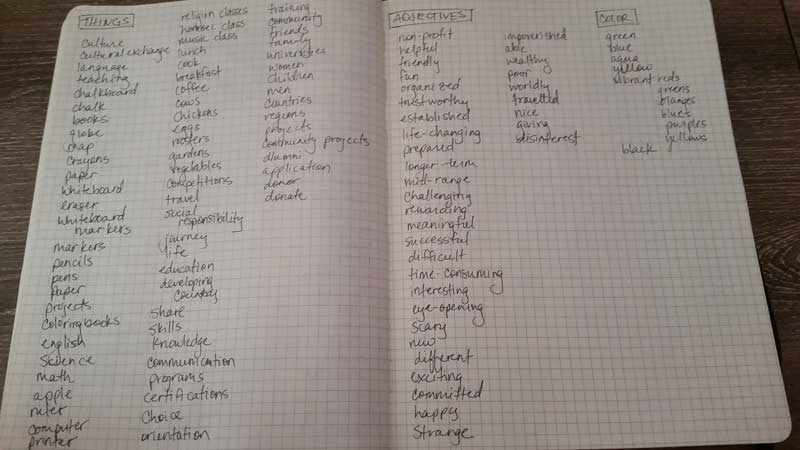 THINGS
culture
cultural exchange
language
teaching
chalkboard
chalk
books
globe
map
crayons
paper
whiteboard
eraser
whiteboard
markers
markers
pencils
pens
paper
projects
coloring books
english
science
math
apple
ruler
computer
printer
religion classes
homeec class
music class
lunch
cook
breakfast
coffee
cows
chickens
eggs
rosters
gardens
vegetables
competitions
travel
social
responsibility
journey
life
education
developing
country
share
skills
knowledge
communication
programs
certifications
choice
orientation
training
community
friends
family
universities
women
children
men
countries
regions
projects
community projects
alumni
application
donor
donate
ADJECTIVES
non-profit
helpful
friendly
fun
organized
trustworthy
established
life-changing
prepared
longer-term
mid-range
challenging
rewarding
meaningful
successful
difficult
time-consuming
interesting
eye-opening
scary
new
different
exciting
committed
happy
strange
impoverished
able
wealthy
poor
worldly
travelled
nice
giving
disinterest
COLOR
green
blue
aqua
yellow
vibrant reds
greens
blues
purples
yellows
black